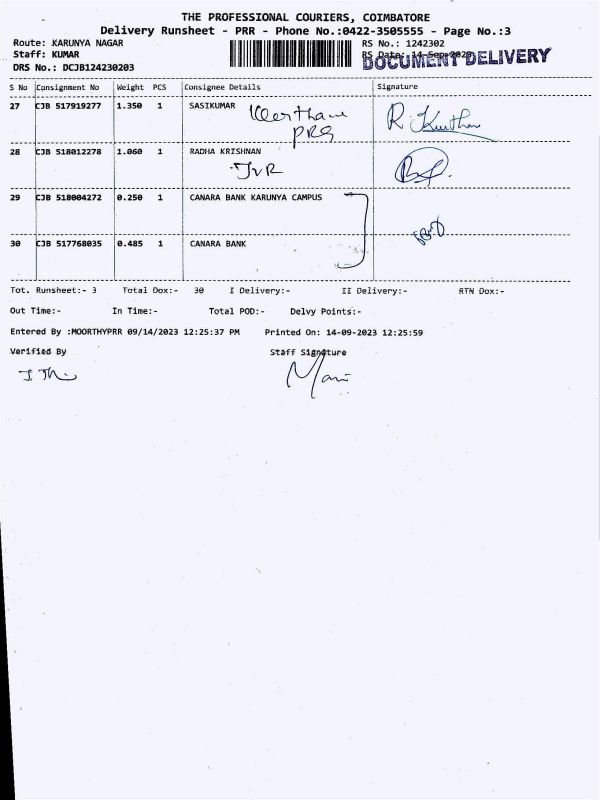 THE PROFESSIONAL COURIERS, COIMBATORE
Delivery Runsheet - PRR - Phone No.:0422-3505555 - Page No.:3
Route: KARUNYA NAGAR RS No.: 1242302
Staff: KUMAR RS Date: 14-Sep-2023
DOCUMENT DELIVERY
DRS No.: DCJB124230203
S No Consignment No Weight PCS Consignee Details Signature
27 CJB 517919277 1.350 1 SASIKUMAR Keerthana R. Keerthana
PRG
28 CJB 518012278 1.060 1 RADHA KRISHNAN
JVR
29 CJB 518004272 0.250 1 CANARA BANK KARUNYA CAMPUS
30 CJB 517768035 0.485 1 CANARA BANK
Tot. Runsheet:- 3 Total Dox:- 30 I Delivery:- II Delivery:- RTN Dox:-
Out Time:- In Time:- Total POD:- Delvy Points:-
Entered By :MOORTHYPRR 09/14/2023 12:25:37 PM Printed On: 14-09-2023 12:25:59
Verified By Staff Signature
Mani